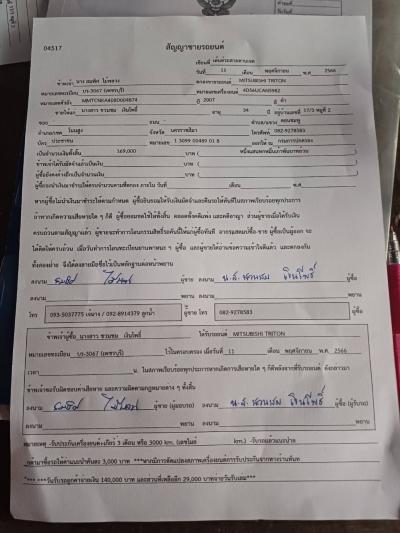 04517
สัญญาขายรถยนต์
วันที่ 11 เดือน พฤศจิกายน พ.ศ. 2566
ข้าพเจ้า นาง สมพิศ MITSUBISHI TRITON
หมายเลขทะเบียน บว-3067 (เพชรบุรี) หมายเลขเครื่องยนต์ 4D56UCAN5982
หมายเลขตัวถัง ปี 2007 สี ดำ
ขายให้แก่ นางสาว ชวนชม เงินโพธิ์ อายุ 34 ปี อยู่บ้านเลขที่ 17/3 หมู่ที่ 2
ซอย ถนน -
อำเภอ/เขต จังหวัด นครราชสีมา โทรศัพท์ 082-9278583
บัตร ประชาชน หมายเลข 1 3099 00489 01 8 ออกให้ ณ กรมการปกครอง
เป็นจำนวนเงินทั้งสิ้น 169,000 บาท (
ข้าพเจ้าได้รับมัดจำแล้วเป็นเงิน บาท ( )
ผู้ซื้อยังคงค้างอีกเป็นจำนวนเงิน บาท ( )
ผู้ซื้อจะนำเงินมาชำระให้ครบจำนวนตามที่ตกลง ภายใน วันที่ เดือน พ.ศ.
หากผู้ซื้อไม่นำเงินมาชำระให้ตามกำหนด ผู้ซื้อยินยอมให้ริบเงินมัดจำและคืนรถให้ทันทีในสภาพเรียบร้อยทุกประการ
ถ้าหากเกิดความเสียหายใด ๆ ก็ดี ผู้ซื้อยอมชดใช้ให้ทั้งสิ้น ตลอดทั้งคดีแพ่ง และคดีอาญา ส่วนผู้ขายเมื่อได้รับเงิน
ครบถ้วนตามสัญญาแล้ว ผู้ขายจะทำการโอนกรรมสิทธิ์รถคันนี้ให้แก่ผู้ซื้อทันที
ทั้งสองฝ่าย จึงได้ลงลายมือชื่อไว้เป็นหลักฐานต่อหน้าพยาน
ลงนาม สมพิศ ผู้ขาย ลงนาม น.ส. ชวนชม เงินโพธิ์ ผู้ซื้อ
ลงนาม พยาน ลงนาม พยาน
โทร 093-5037775 / 092-8914379 ผู้ขาย โทร 082-9278583 ผู้ซื้อ
ข้าพเจ้าผู้ซื้อ นางสาว ชวนชม เงินโพธิ์ ได้รับรถยนต์ MITSUBISHI TRITON
หมายเลขทะเบียน บว-3067 (เพชรบุรี) ไว้ในครอบครอง เมื่อวันที่ 11 เดือน พฤศจิกายน พ.ศ. 2566
เวลา น. ในสภาพเรียบร้อยทุกประการหากเกิดการเสียหายใด ๆ ก็ดีหลังจากที่รับรถยนต์ ดังกล่าวมา
ข้าพเจ้าขอรับผิดชอบค่าเสียหาย และความผิดตามกฎหมายต่าง ๆ ทั้งสิ้น
ลงนาม สมพิศ ผู้ขาย (ผู้มอบรถ) ลงนาม น.ส. ชวนชม เงินโพธิ์ ผู้ซื้อ (ผู้รับรถ)
ลงนาม พยาน ลงนาม พยาน
หมายเหตุ -รับประกันเครื่องยนต์+เกียร์ 3 เดือน หรือ 3000 km. (เลขไมล์ km.)
ให้ค่าแนะนำคันละ 3,000 บาท
*** ***วันรับรถลูกค้าจ่ายเงิน 140,000 บาท และส่วนที่เหลืออีก 29,000 บาท